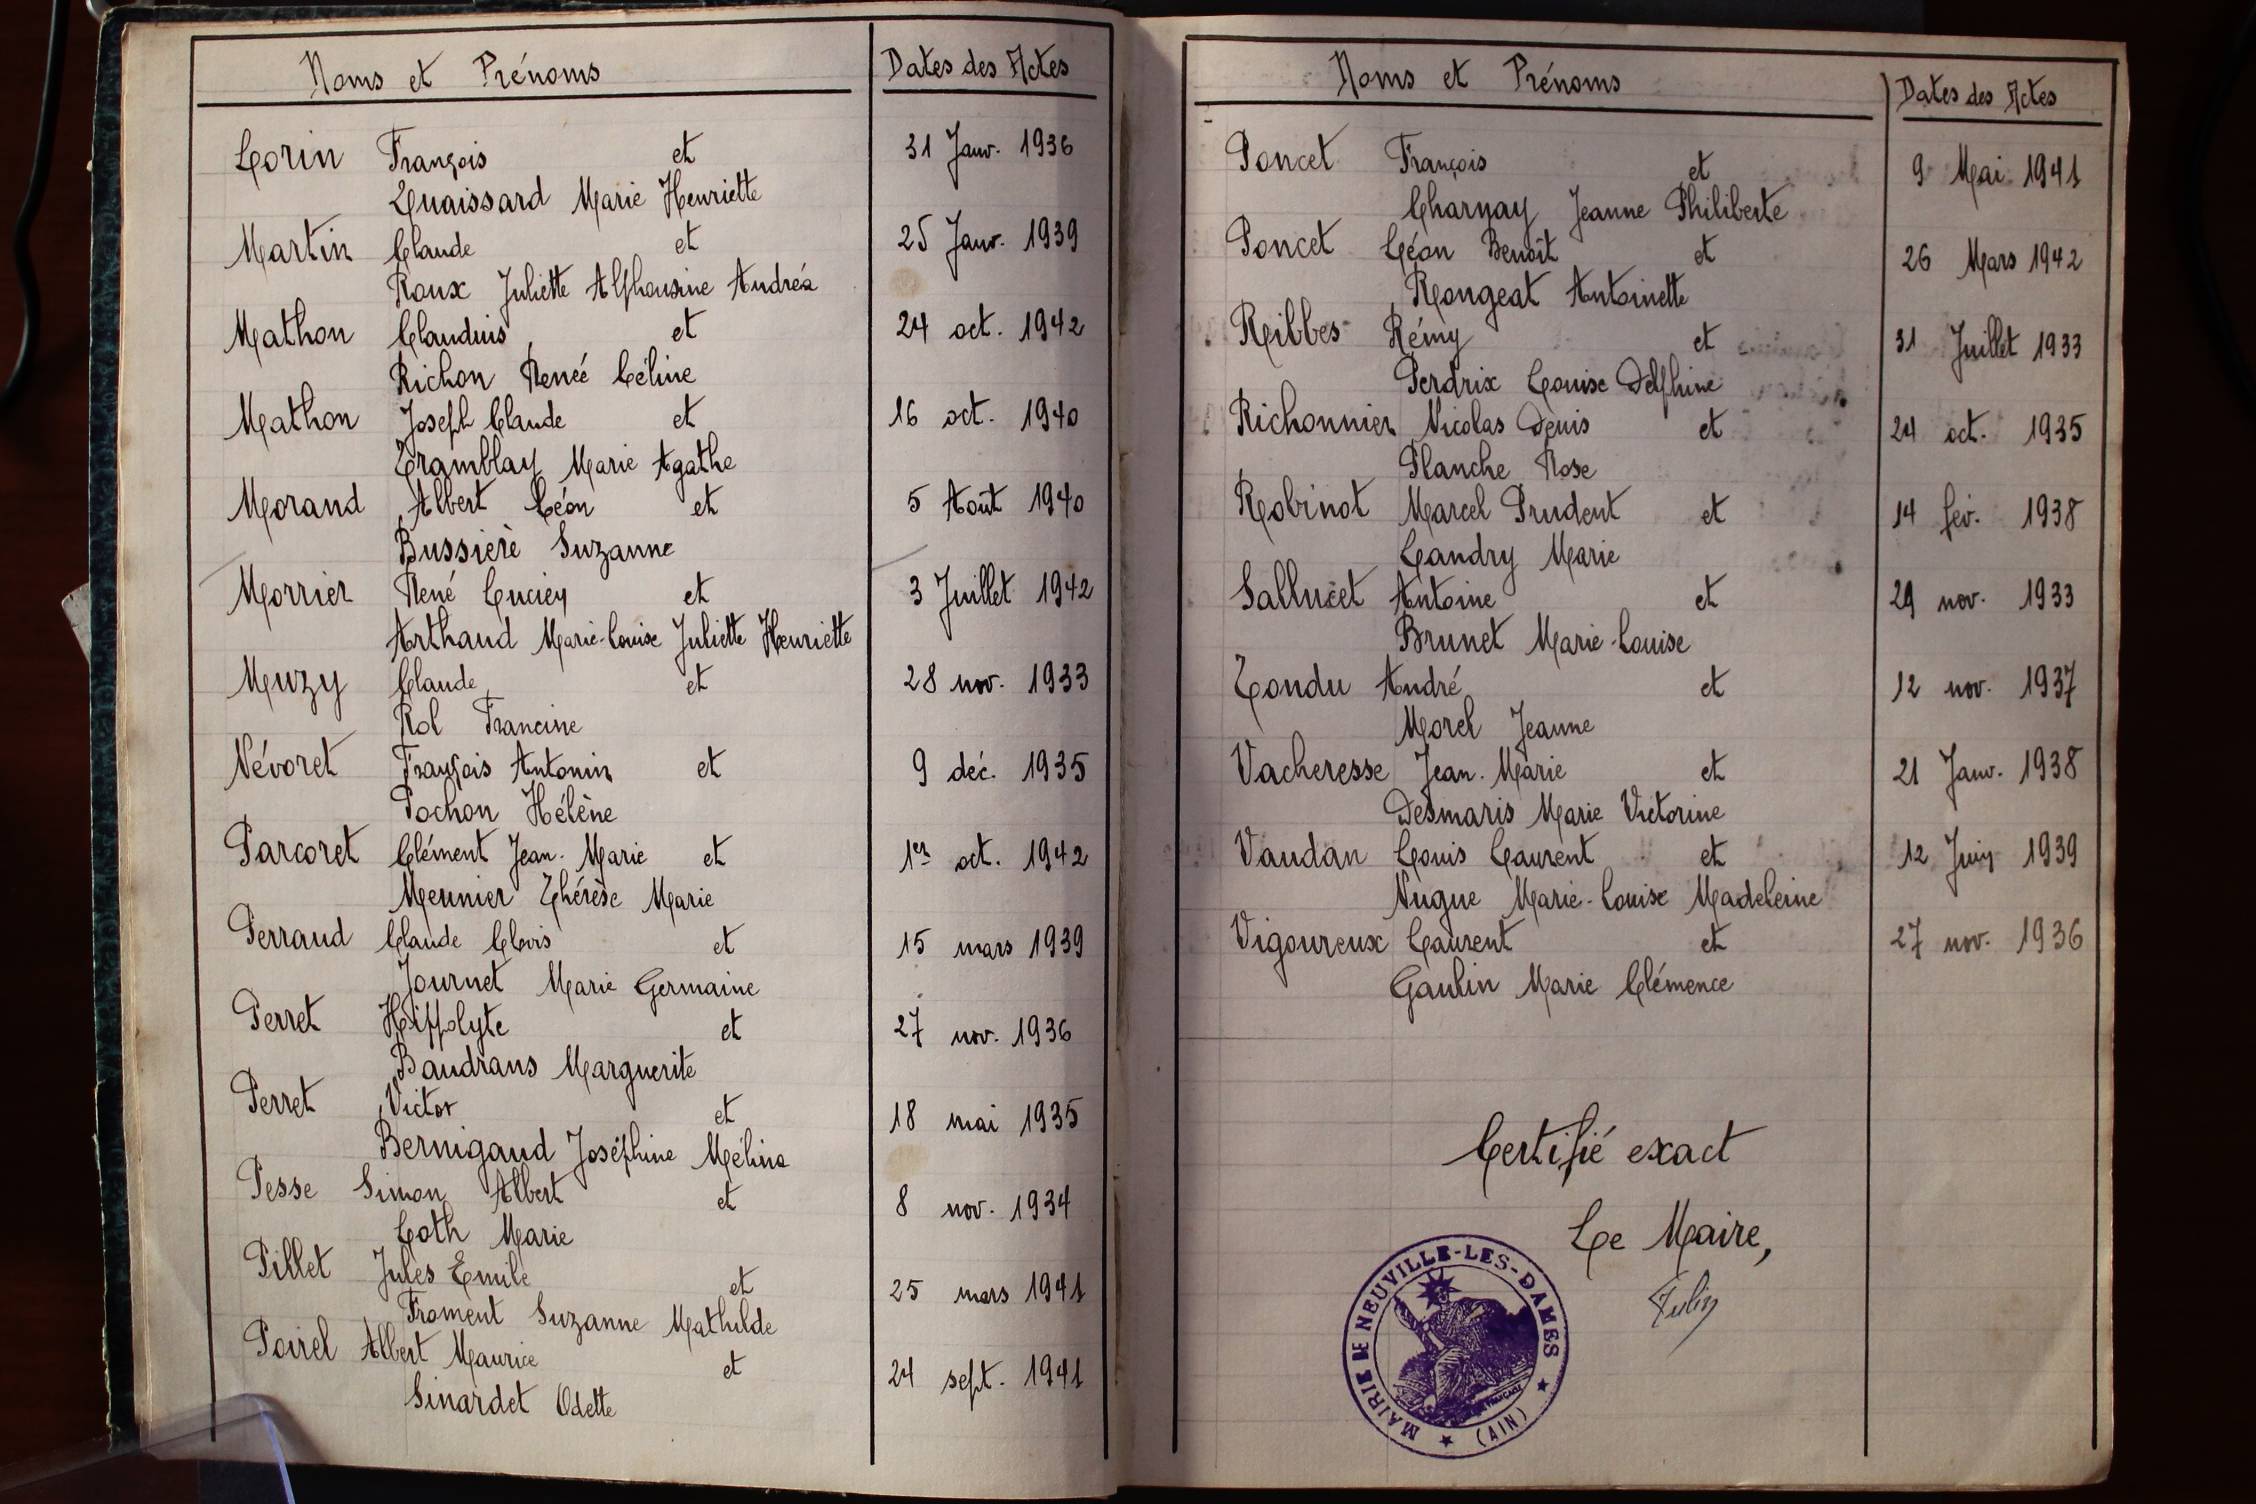 Noms et Prénoms
Dates des Actes
Lorin François et 31 Janv. 1936
Quaissard Marie Henriette
Martin Claude et 25 Janv. 1939
Roux Juliette Alphonsine Andréa
Mathon Claudius et 24 oct. 1942
Richon Renée Céline
Mathon Joseph Claude et 16 oct. 1940
Tramblay Marie Agathe
Morand Albert Léon et 5 Août 1940
Bussière Suzanne
Morrier René Lucien et 3 Juillet 1942
Arthaud Marie-Louise Juliette Henriette
Muzy Claude et 28 nov. 1933
Rol Francine
Névoret François Antonin et 9 déc. 1935
Pochon Hélène
Parcoret Clément Jean-Marie et 1er oct. 1942
Meunier Thérèse Marie
Perraud Claude Clovis et 15 mars 1939
Journet Marie Germaine
Perret Hippolyte et 27 nov. 1936
Baudrans Marguerite
Perret Victor et 18 mai 1935
Bernigaud Joséphine Mélina
Pesse Simon Albert et 8 nov. 1934
Loth Marie
Pillet Jules Emile et 25 mars 1941
Froment Suzanne Mathilde
Poirel Albert Maurice et 24 sept. 1941
Sinardet Odette
Noms et Prénoms
Dates des Actes
Poncet François et 9 Mai 1941
Charnay Jeanne Philiberte
Poncet Léon Benoît et 26 Mars 1942
Rongeat Antoinette
Reibbes Rémy et 31 Juillet 1933
Perdrix Louise Delphine
Richonnier Nicolas Denis et 24 oct. 1935
Planche Rose
Robinot Marcel Prudent et 14 fév. 1938
Landry Marie
Sallucet Antoine et 29 nov. 1933
Brunet Marie-Louise
Tondu André et 12 nov. 1937
Morel Jeanne
Vacheresse Jean-Marie et 21 Janv. 1938
Desmaris Marie Victorine
Vaudan Louis Laurent et 12 Juin 1939
Nugue Marie-Louise Madeleine
Vigoureux Laurent et 27 nov. 1936
Gaulin Marie Clémence
Certifié exact
Le Maire,
MAIRIE DE NEUVILLE-LES-DAMES
(AIN)